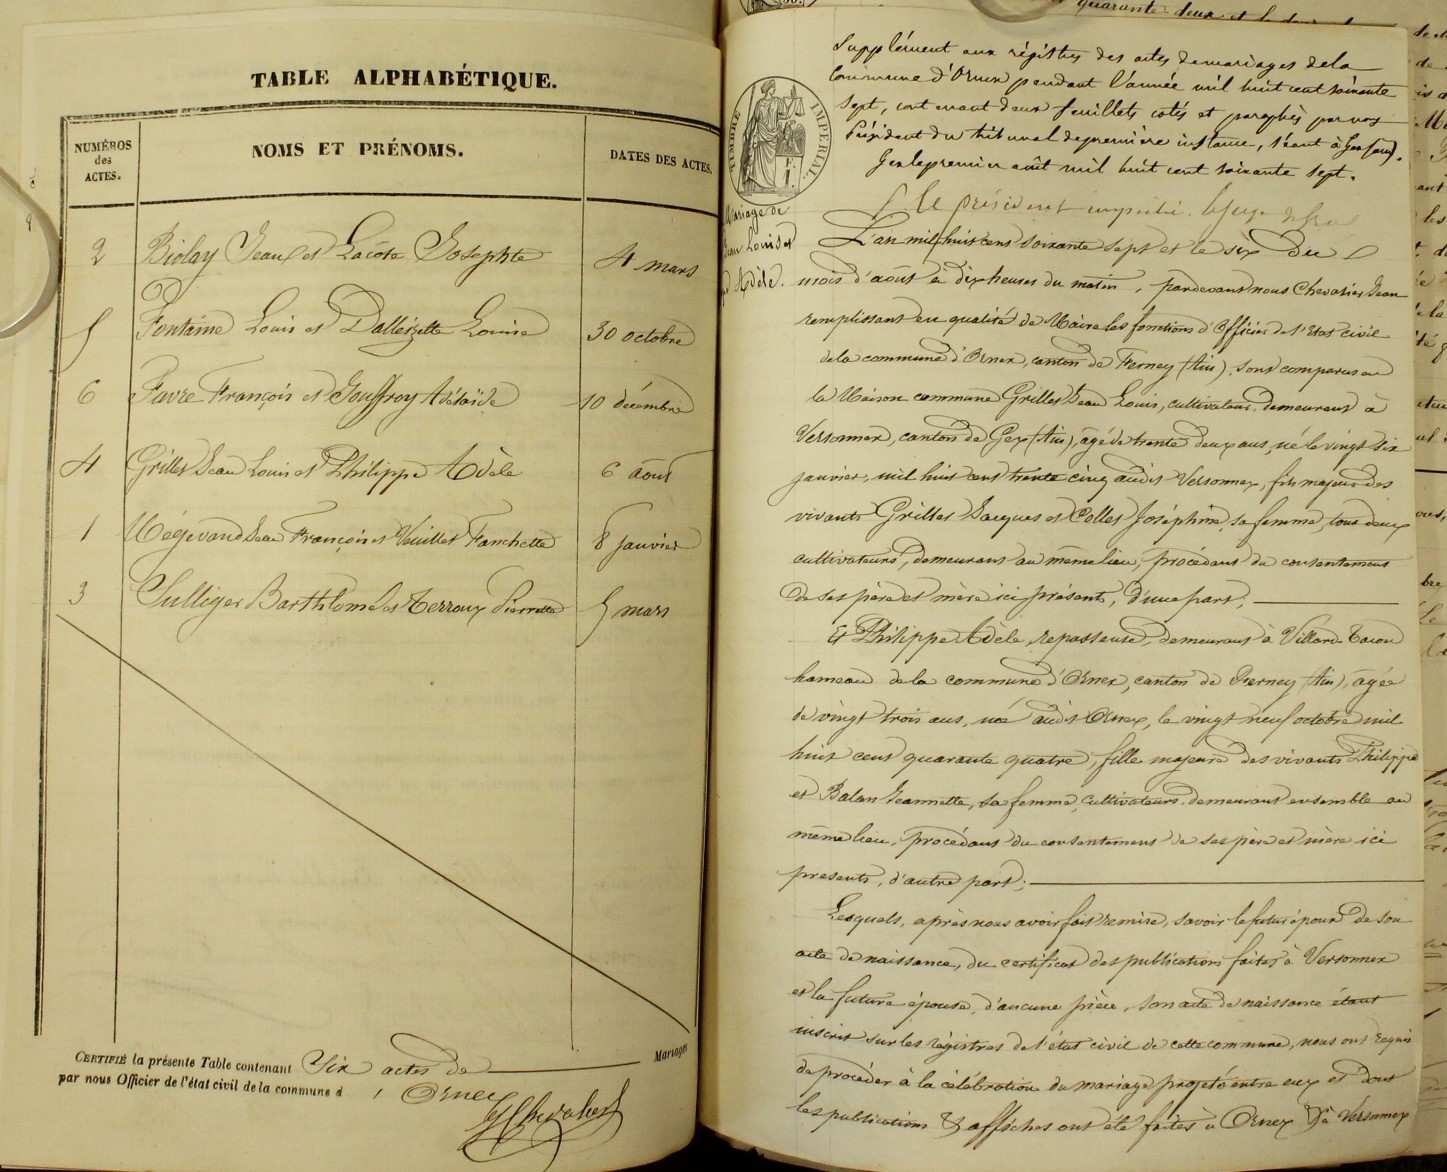 TABLE ALPHABÉTIQUE.
NUMÉROS des ACTES. NOMS ET PRÉNOMS. DATES DES ACTES.
2 Biolay Jean et Lacôte Josephte 4 mars
5 Fontaine Louis et Dalleizette Louise 30 octobre
6 Favre François et Gouffroy Adélaïde 10 décembre
4 Grillet Jean Louis et Philippe Adèle 6 août
1 Mégevand Jean François et Vuillet Fanchette 8 janvier
3 Sulliger Barthlomé et Terroux Pierrette 5 mars
CERTIFIÉ la présente Table contenant Six actes de Mariages
par nous Officier de l'état civil de la commune d' Ornex
Chevalier
Supplément aux régistres des actes de mariages de la
Commune d'Ornex pendant l'année mil huit cent soixante
sept, contenant deux feuillets cotés et paraphés par nous
Président du tribunal de première instance, séant à Gex (ain).
Gex le premier août mil huit cent soixante sept.
Le président empêché. le juge
TIMBRE IMPÉRIAL.
Mariage de
Jean Louis et
Adèle.
L'an mil huit cent soixante sept et le six du
mois d'août à dix heures du matin, pardevant nous Chevalier Jean
remplissant en qualité de Maire les fonctions d'Officier de l'Etat civil
de la commune d'Ornex, canton de Ferney (Ain), sont comparus en
la Maison commune Grillet Jean Louis, cultivateur, demeurant à
Versonnex, canton de Gex (Ain), âgé de trente deux ans, né le vingt six
janvier, mil huit cent trente cinq audit Versonnex, fils majeur des
vivants Grillet Jacques et Collet Joséphine sa femme, tous deux
cultivateurs, demeurant au même lieu, procédant du consentement
de ses père et mère ici présents, d'une part,
Et Philippe Adèle, repasseuse, demeurant à Villard Tacon
hameau de la commune d'Ornex, canton de Ferney (Ain), âgée
de vingt trois ans, née audit Ornex, le vingt neuf octobre mil
huit cent quarante quatre, fille majeure des vivants Philippe
et Balan Jeannette, sa femme, cultivateurs demeurant ensemble au
même lieu, procédant du consentement de ses père et mère ici
presents, d'autre part;
Lesquels, après nous avoir fait remise, savoir le futur époux de son
acte de naissance, du certificat des publications faites à Versonnex
et la future épouse, d'aucune pièce, son acte de naissance étant
inscrit sur les régistres de l'état civil de cette commune, nous ont requis
de procéder à la célébration du mariage projeté entre eux et dont
les publications & affiches ont été faites à Ornex & à Versonnex